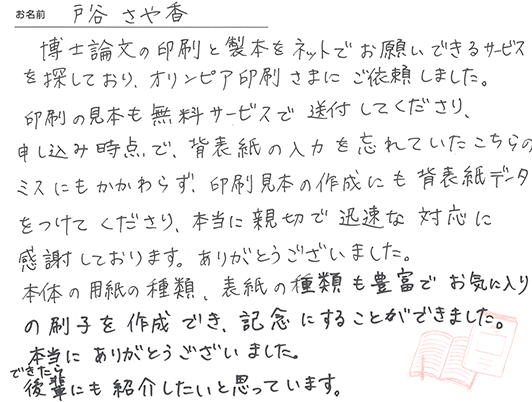 お名前 戸谷 さや香
博士論文の印刷と製本をネットでお願いできるサービス
を探しており、オリンピア印刷さまにご依頼しました。
印刷の見本も無料サービスで送付してくださり、
申し込み時点で、背表紙の入力を忘れていたこちらの
ミスにもかかわらず、印刷見本の作成にも背表紙データ
をつけてくださり、本当に親切で迅速な対応に
感謝しております。ありがとうございました。
本体の用紙の種類、表紙の種類も豊富でお気に入り
の刷子を作成でき、記念にすることができました。
本当にありがとうございました。
できたら
後輩にも紹介したいと思っています。